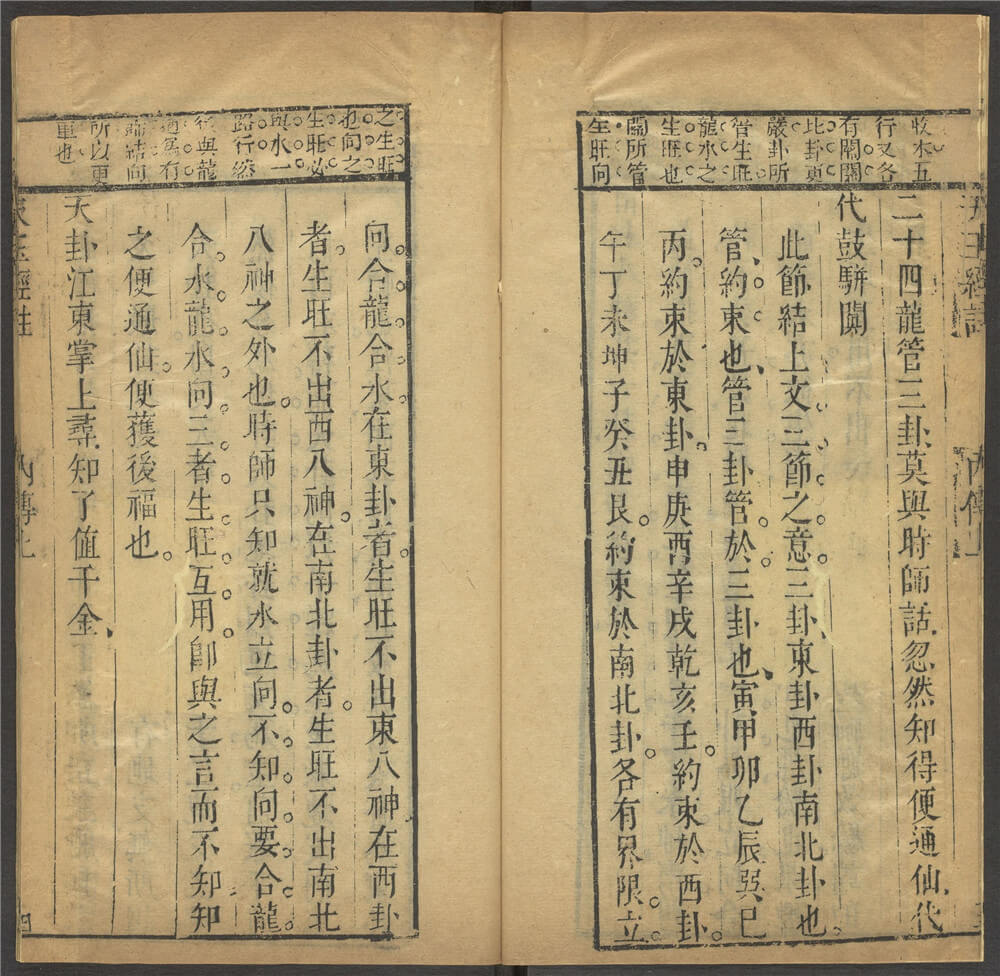 收水五
行又各
有關闗
此卦更
嚴卦所
管生旺
龍水之
生旺也
關所管
生旺向
二十四龍管三卦莫與時師話忽然知得便通仙代
代鼓駢闐
此節結上文三節之意三卦東卦西卦南北卦也
管約束也管三卦管於三卦也寅甲卯乙辰巽巳
丙約束於東卦申庚酉辛戌乾亥壬約束於西卦
午丁未坤子癸丑艮約束於南北卦各有界限立
之生旺
也向之
生旺必
與水一
路行然
後與龍
通爲有
歸結向
所以更
重也
向合龍合水在東卦者生旺不出東八神在西卦
者生旺不出西八神在南北卦者生旺不出南北
八神之外也時師只知就水立向不知向要合龍
合水龍水向三者生旺互用卽與之言而不知知
之便通仙便獲後福也
天卦江東掌上尋知了值千金